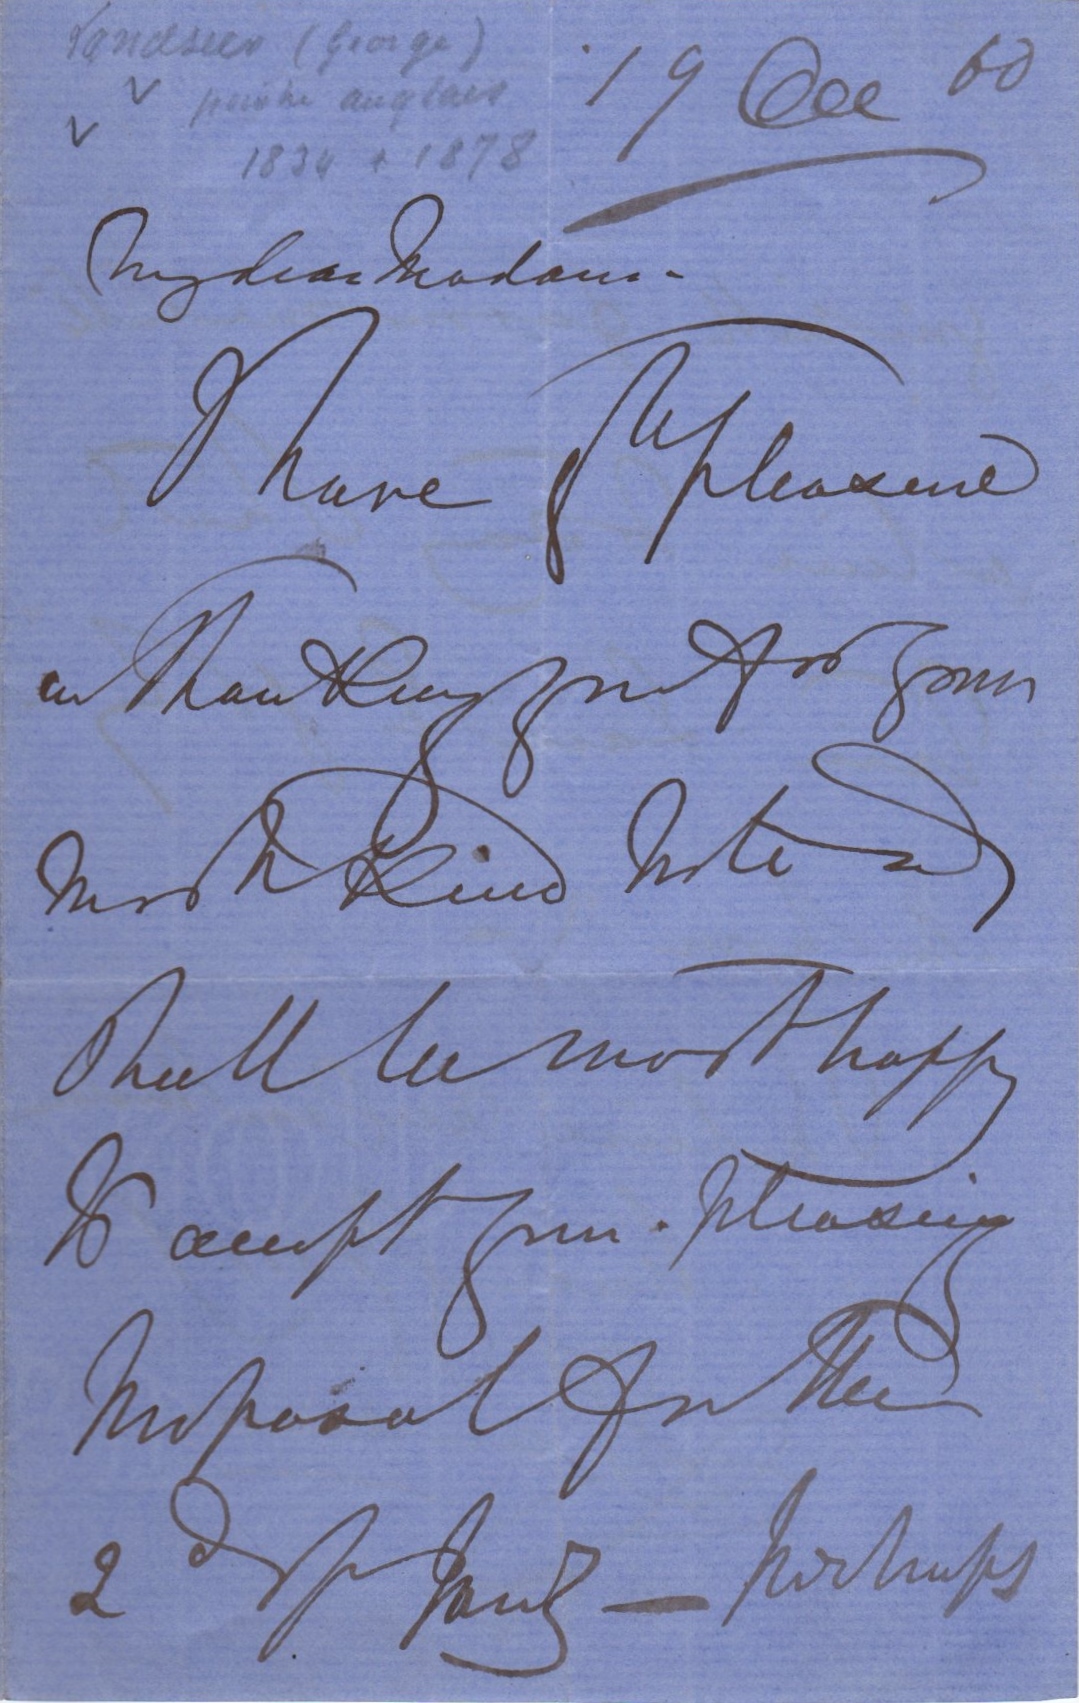 Landseer (George)
peintre anglais
1834 + 1878
19 Dec 60
My dear Madam -
I have gt pleasure
in Thanking you for your
most Kind Note &
Shall be most happy
To accept your pleasing
proposal for the
2d of Jany — perhaps